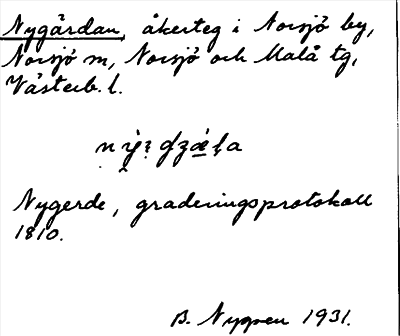 Nygärdan, åkerteg i Norsjö by,
Norsjö sn, Norsjö och Malå tg,
Västerb. l.
Nygerde, graderingsprotokoll
1810.
B. Nygren 1931.